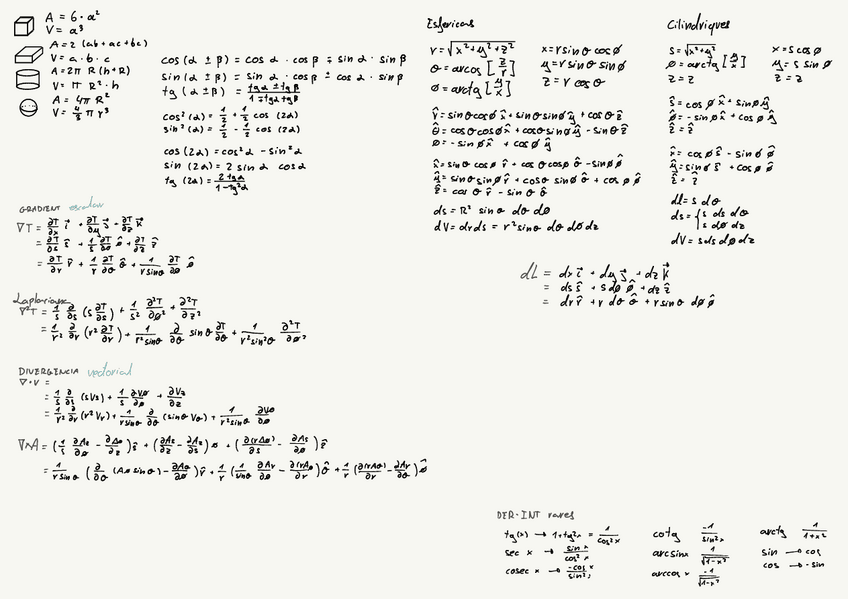 A = 6 · a²
V = a³
A = 2 (ab + ac + bc)
V = a · b · c
A = 2π R (h + R)
V = π R² · h
A = 4π R²
V = 4/3 π r³
cos (α ± β) = cos α · cos β ∓ sin α · sin β
sin (α ± β) = sin α · cos β ± cos α · sin β
tg (α ± β) = (tg α ± tg β)/(1 ∓ tg α tg β)
cos² (α) = 1/2 + 1/2 cos (2α)
sin² (α) = 1/2 - 1/2 cos (2α)
cos (2α) = cos² α - sin² α
sin (2α) = 2 sin α cos α
tg (2α) = (2 tg α)/(1 - tg² α)
Esfericas
r = √(x² + y² + z²)
θ = arcos [z/r]
ø = arctg [y/x]
x = r sin θ cos ø
y = r sin θ sin ø
z = r cos θ
r̂ = sin θ cos ø x̂ + sin θ sin ø ŷ + cos θ ẑ
θ̂ = cos θ cos ø x̂ + cos θ sin ø ŷ - sin θ ẑ
ø̂ = - sin ø x̂ + cos ø ŷ
x̂ = sin θ cos ø r̂ + cos θ cos ø θ̂ - sin ø ø̂
ŷ = sin θ sin ø r̂ + cos θ sin ø θ̂ + cos ø ø̂
ẑ = cos θ r̂ - sin θ θ̂
ds = R² sin θ dθ dø
dV = dr ds = r² sin θ dθ dø dz
Cilindriques
s = √(x² + y²)
ø = arctg [y/x]
z = z
x = s cos ø
y = s sin ø
z = z
ŝ = cos ø x̂ + sin ø ŷ
ø̂ = - sin ø x̂ + cos ø ŷ
ẑ = ẑ
x̂ = cos ø ŝ - sin ø ø̂
ŷ = sin ø ŝ + cos ø ø̂
ẑ = ẑ
dl = s dø
ds = { s ds dø
s dø dz
dV = s ds dø dz
dL = dx i⃗ + dy j⃗ + dz k⃗
= ds ŝ + s dø ø̂ + dz ẑ
= dr r̂ + r dθ θ̂ + r sin θ dø ø̂
GRADIENT escalar
∇T = ∂T/∂x i⃗ + ∂T/∂y j⃗ + ∂T/∂z k⃗
= ∂T/∂s ŝ + 1/s ∂T/∂ø ø̂ + ∂T/∂z ẑ
= ∂T/∂r r̂ + 1/r ∂T/∂θ θ̂ + 1/(r sin θ) ∂T/∂ø ø̂
Laplaciana
∇²T = 1/s ∂/∂s (s ∂T/∂s) + 1/s² ∂²T/∂ø² + ∂²T/∂z²
= 1/r² ∂/∂r (r² ∂T/∂r) + 1/(r² sin θ) ∂/∂θ sin θ ∂T/∂θ + 1/(r² sin² θ) ∂²T/∂ø²
DIVERGENCIA vectorial
∇·V =
= 1/s ∂/∂s (s Vs) + 1/s ∂Vø/∂ø + ∂Vz/∂z
= 1/r² ∂/∂r (r² Vr) + 1/(r sin θ) ∂/∂θ (sin θ Vθ) + 1/(r² sin θ) ∂Vø/∂ø
∇×A = (1/s ∂Az/∂ø - ∂Aø/∂z) ŝ + (∂As/∂z - ∂Az/∂s) ø̂ + (∂(rAø)/∂s - ∂As/∂ø) ẑ
= 1/(r sin θ) (∂/∂θ (Aø sin θ) - ∂Aθ/∂ø) r̂ + 1/r (1/sin θ ∂Ar/∂ø - ∂(rAø)/∂r) θ̂ + 1/r (∂(rAθ)/∂r - ∂Ar/∂θ) ø̂
DER-INT rares
tg(x) → 1 + tg² x = 1/cos² x
sec x → sin x/cos² x
cosec x → -cos x/sin² x
cotg -1/sin² x
arcsin x 1/√(1-x²)
arccos x -1/√(1-x²)
arctg 1/(1+x²)
sin → cos
cos → -sin